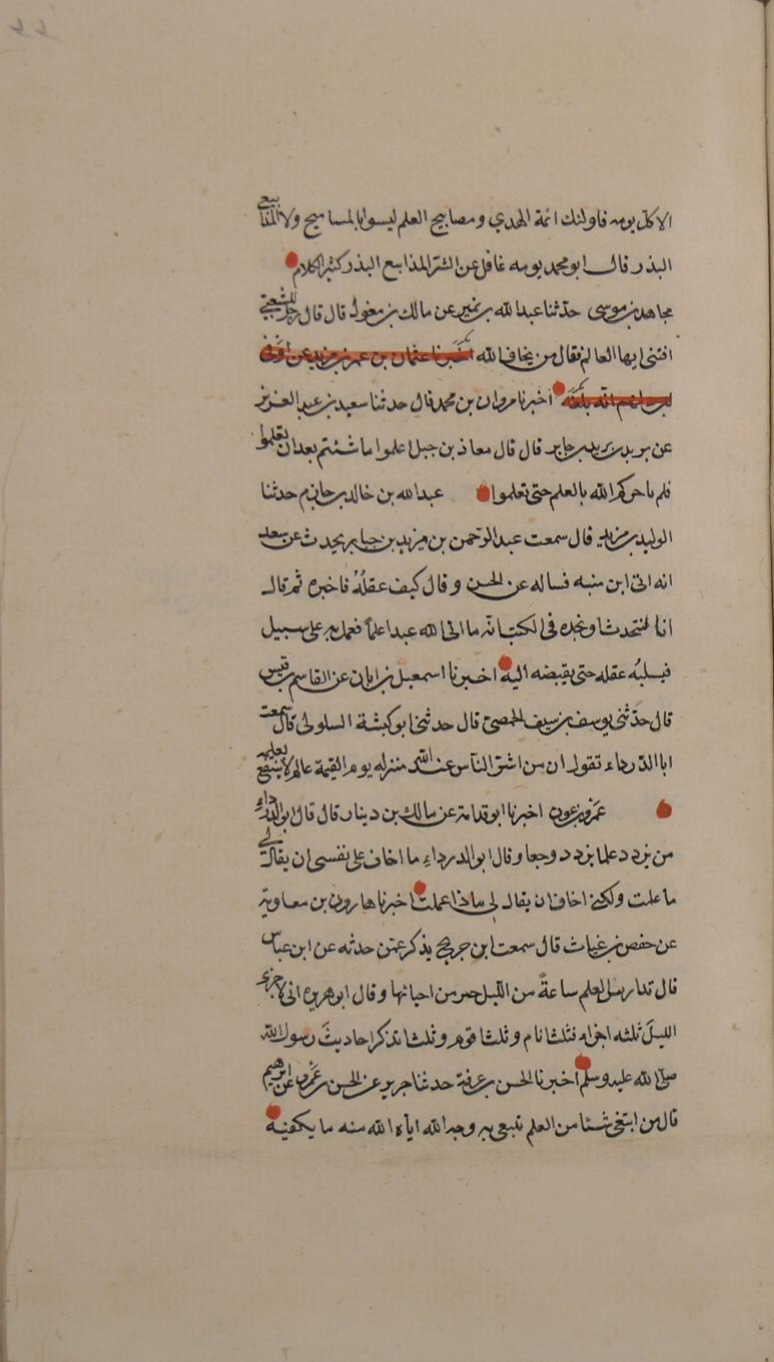 الا كل نومه فاولئك ائمة الهدي ومصابيح العلم ليسوا بالمساييح ولا المذاييع
البذر قال ابو محمد نومه غافل عن الشر المذاييع البذر كثير الكلام
مجاهد بن موسى حدثنا عبد الله بن نمير عن مالك بن مغول قال قال رجل للشعبي
افتنى ايها العالم فقال من يخاف الله اخبرنا عثمان بن عمر بن مزيد عن اوفى
انه بلغه اخبرنا مروان بن محمد قال حدثنا سعيد بن عبد العزيز
عن يزيد بن يزيد بن جابر قال قال معاذ بن جبل اعملوا ما شئتم بعد ان تعلموا
فلم ياجركم الله بالعلم حتى تعلموا عبد الله بن خالد بن حازم حدثنا
الوليد بن مزيد قال سمعت عبد الرحمن بن يزيد بن جابر يحدث عن سعد
انه اتى ابن منبه فساله عن الحسن وقال كيف عقله فاخبره ثم قال
انا لنتحدث او نجده في الكتب انه ما اتى الله عبدا علما فعمل به على سبيل
فيسلبه عقله حتى يقبضه اليه اخبرنا اسمعيل بن ابان عن القاسم بن قيس
قال حدثني يوسف بن سيف الحمصي قال حدثني ابو كبشة السلولي قال سمعت
ابا الدرداء تقول ان من اشر الناس عند الله منزله يوم القيمة عالم لا ينتفع بعلمه
عمرو بن عون اخبرنا ابو قدامة عن مالك بن دينار قال قال ابو الدرداء
من يزدد علما يزدد وجعا وقال ابو الدرداء ما اخاف على نفسي ان يقال لي
ما علمت ولكني اخاف ان يقال لي ماذا عملت اخبرنا هارون بن معاوية
عن حفص بن غياث قال سمعت ابن جريج يذكر عمن حدثه عن ابن عباس
قال تدارس العلم ساعة من الليل خير من احيائها وقال ابو هريره اني لاجزء
الليل ثلثه اجزاء فثلثا نام وثلثا قوم وثلثا تذكر احاديث رسول الله
صلى الله عليه وسلم اخبرنا الحسن بن عرفة حدثنا جرير عن الحسن بن عمرو عن ابرهيم
قال من ابتغى شئا من العلم تبغى به وجه الله اياه الله منه ما يكفيه